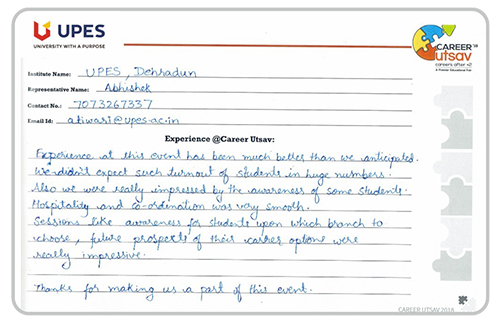 UPES
UNIVERSITY WITH A PURPOSE
CAREER
utsav
careers after +2
A Premier Educational Fair
Institute Name: UPES, Dehradun
Representative Name: Abhishek
Contact No.: 7073267337
Email Id: atiwari@upes-ac.in
Experience @Career Utsav:
Experience at this event has been much better than we anticipated.
We didn't expect such turnout of students in huge numbers.
Also we were really impressed by the awareness of some students.
Hospitality and co-ordination was very smooth.
Sessions like awareness for students upon which branch to
choose, future prospects of their career options were
really impressive.
Thanks for making us a part of this event.
CAREER UTSAV 2018